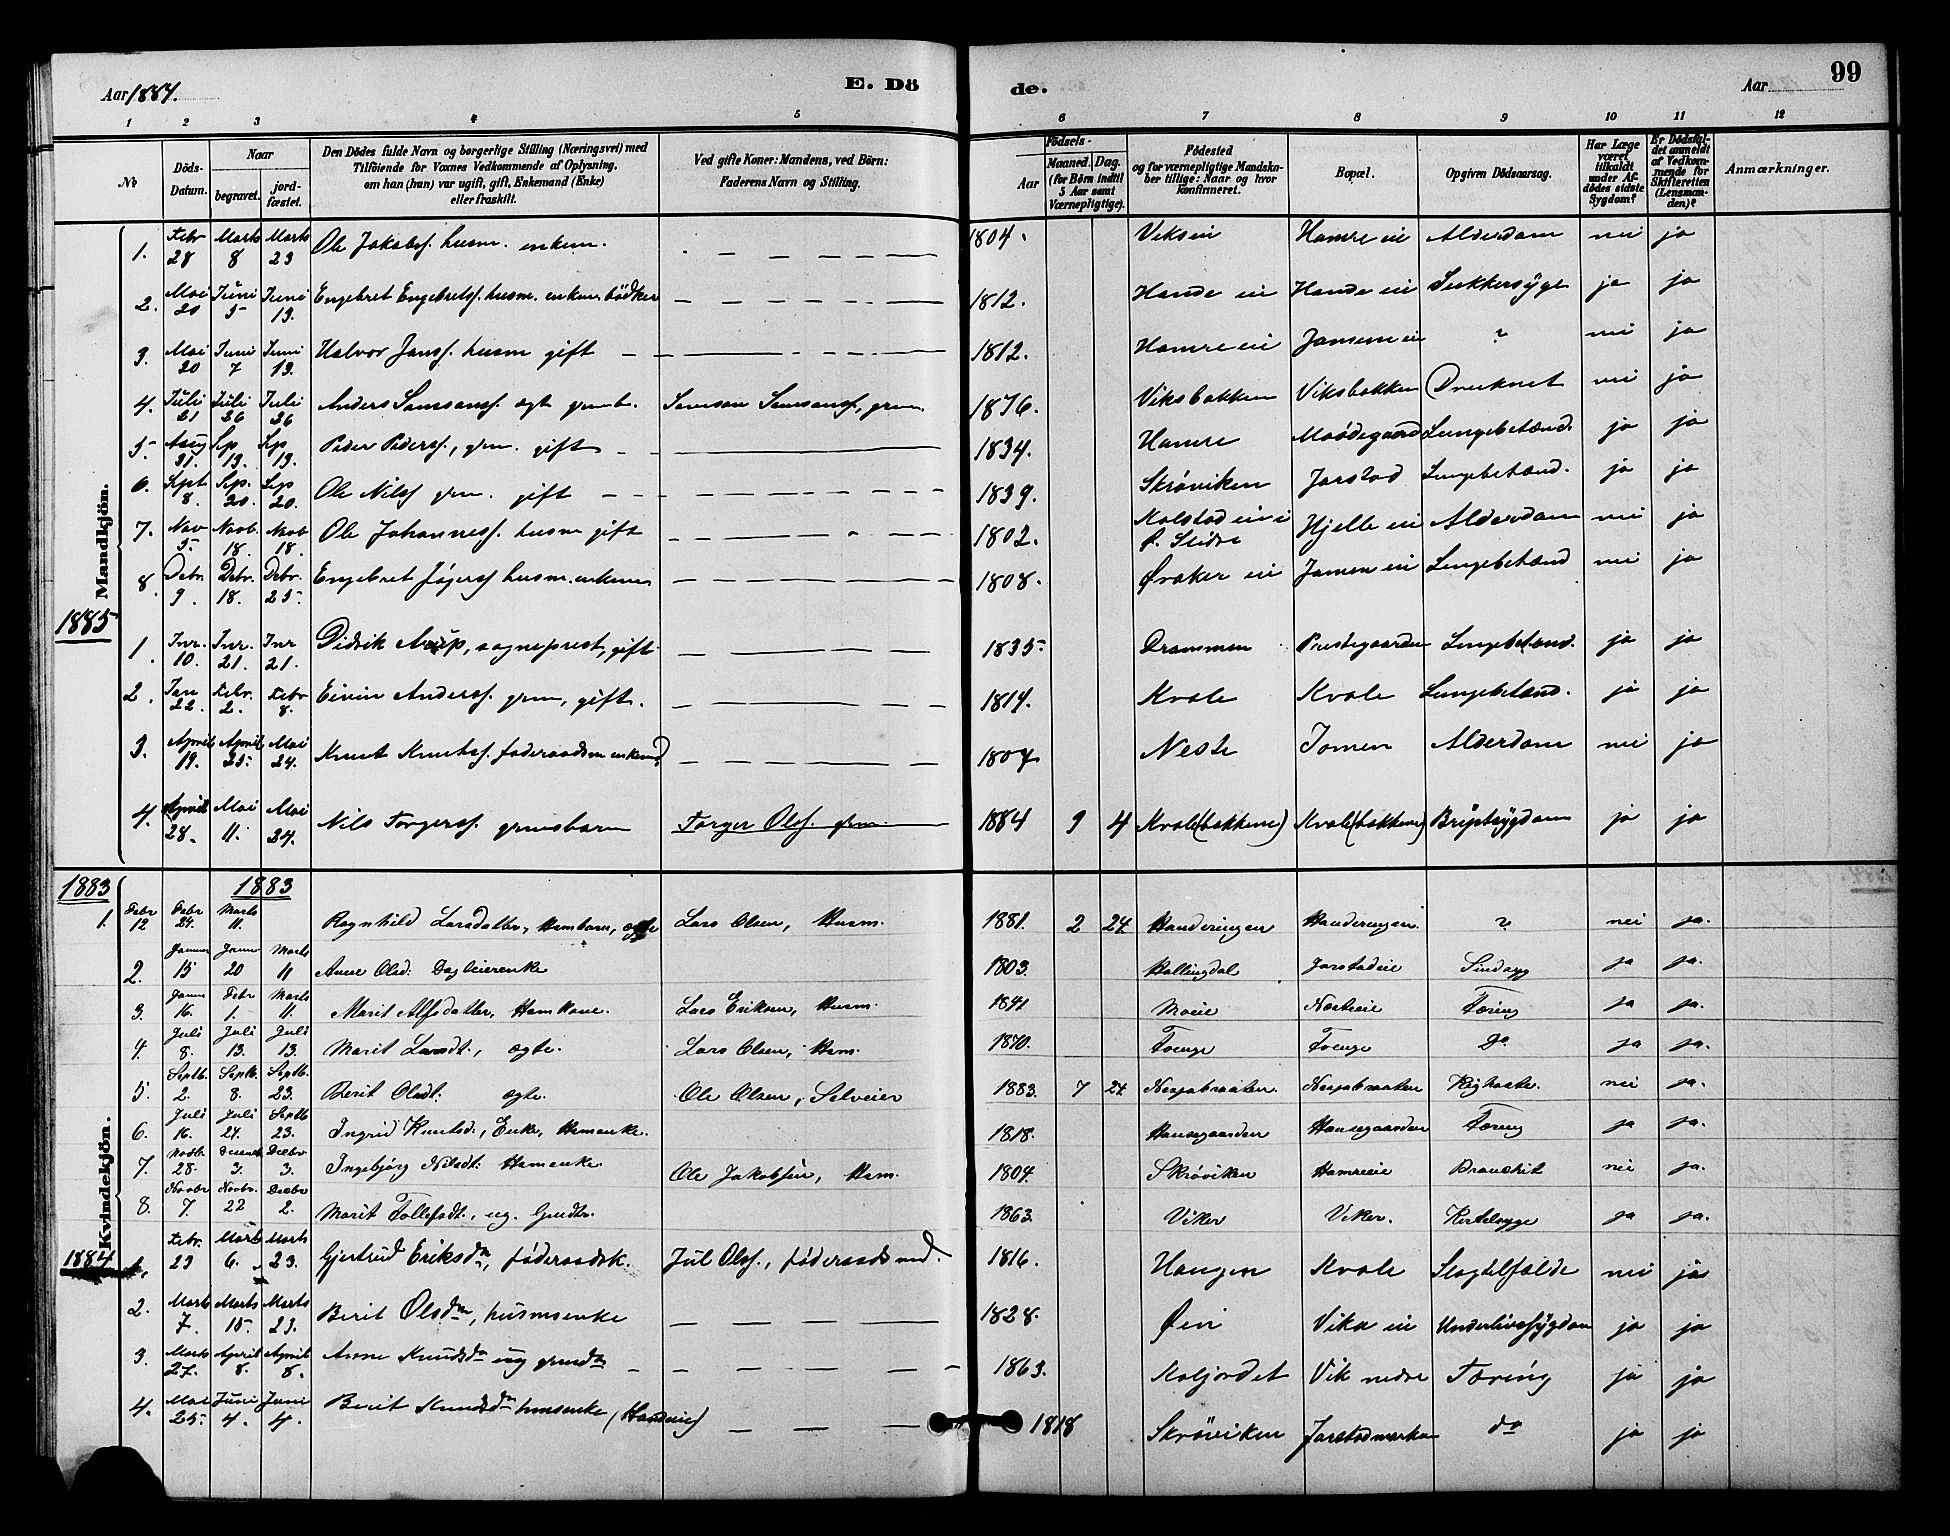 Aar 1884.
E. Dö
de.
Aar
99
1 2 3 4 5 6 7 8 9 10 11 12
No
Döds-Datum.
Naar
begravet.
jord-fæstet.
Den Dödes fulde Navn og borgerlige Stilling (Næringsvei) med
Tilföiende for Voxnes Vedkommende af Oplysning,
om han (hun) var ugift, gift, Enkemand (Enke)
eller fraskilt.
Ved gifte Koner: Mandens, ved Börn:
Faderens Navn og Stilling.
Födsels-
Aar
Maaned. Dag.
(for Börn indtil
5 Aar samt
Værnepligtige).
Födested
og for værnepligtige Mandska-
ber tillige: Naar og hvor
konfirmeret.
Bopæl.
Opgiven Dödsaarsag.
Har Læge
været
tilkaldt
under Af-
dödes sidste
Sygdom?
Er Dödsfal-
det anmeldt
af Vedkom-
mende for
Skifteretten
(Lensman-
den)?
Anmærkninger.
Mandkjön.
1. Febr 28 Marts 8 Marts 23 Ole Jakobss. husm. enkem. 1804. Viksei Hamre ei Alderdom nei ja
2. Mai 20 Juni 5 Juni 19. Engebret Engebretss. husm. enkem. bödker 1812. Hande ei Hande ei Sukkersyge ja ja
3. Mai 20 Juni 7 Juni 19. Halvor Janss. husm gift 1812. Hamre ei Jomen ei ? nei ja
4. Juli 21 Juli 26 Juli 26 Anders Samsons. ægt grmb. Samson Samsons, grm. 1876. Viksbakken Viksbakken Druknet nei ja
5. Aug 31. Sep. 19. Sep. 19. Peder Peders., grm. gift 1834. Hamre Moödegaard Lungebetænd. ja ja
6. Sept 8. Sep. 20. Sep 20. Ole Nilss grm. gift 1839. Skrøviken Jarstad Lungebetænd. ja ja
7. Nov 5 Novb. 18. Novb 18. Ole Johanness. husm gift 1802. Kolstad ei i Ø. Slidre Hjelle ei Alderdom nei ja
8. Debr. 9. Debr. 18. Debr. 25. Engebret husm. enkem 1808. Øvaker ei Jomen ei Lungebetænd nei ja
1885
1. Jnr. 10. Jnr. 21. Jnr 21. Didrik Arup, sogneprest, gift 1835 Drammen Prestegaarden Lungebetænd. ja ja
2. Jan 22. Febr. 2. Febr 8. Eivin Anderss. grm, gift. 1814. Kvale Kvale Lungebetænd. ja ja
3. April 19. April 25. Mai 24. Knut Knuts. föderaadsm enkemd 1804 Neste Jomen Alderdom nei ja
4. April 28. Mai 11. Mai 24. Nils Torgerss. grmsbarn Torger Olss. grm. 1884 9 4 Kvale (bakkene) Kvale (bakkene) Brystsygdom ja ja
1883
1883
Kvindekjön.
1. Febr 12 Febr 24. Marts 11. Ragnhild Larsdatter, Hsmbarn, ægte Lars Olsen, Husm. 1881. 2 24. Handeringen Handeringen. ? nei ja.
2. Januar 15 Januar 20 Marts 11 Anne Olsd. Dagleierenke 1803. Hallingdal Jarstadeie Sindsyg ja ja.
3. Januar 16. Febr 1. Marts 11. Marit Alfsdatter, Hsmkone. Lars Eriksen, Husm. 1841 Moeie Nesteeie Tæring ja ja.
4. Juli 8. Juli 13. Juli 13. Marit Larsdt., ægte. Lars Olsen, Hsm. 1870. Tvenge Tvenge Do ja ja.
5. Septb. 2. Septb. 8. Septb. 23. Berit Olsdt. ægte. Ole Olsen, Selveier 1883. 7 24. Nesjabraaten. Nesjabraaten Kighoste. nei ja.
6. Juli 16. Juli 24. Septb 23. Ingrid Knutsd., Enke, Hsmenke. 1818. Hansegaarden Hansegaarden Tæring ja ja.
7. Novb. 28. Decemb 3. Decbr 3. Ingebjørg Nilsdt. Hsmenke Ole Jakobsen, Hsm. 1804. Skrøviken Hamreeie nei ja.
8. Novbr 7 Novbr. 22 Decbr 2. Marit Tollefsdt., ug. Grmdtr. 1863. Viker Viker. Kirtelsyge ja ja.
1884
1. Febr. 23 Marts 6. Marts 23. Gjertrud Eriksdr, föderaadsk. Jul Olss., föderaadsmd. 1816. Haugen Kvale Slagtilfælde nei ja
2. Marts 7. Marts 15. Marts 23. Berit Olsdr, husmsenke 1828. Øen Vika ei Underlivssygdom ja ja
3. Marts 27. April 8. April 8. Anne Knudsdr ug grmdr 1863. Koljordet Vik nedre Tæring ja ja
4. Mai 25 Juni 4. Juni 4. Berit Knudsdr husmenke (Handeeie) 1818 Skrøviken Jarstadmarka do ja ja